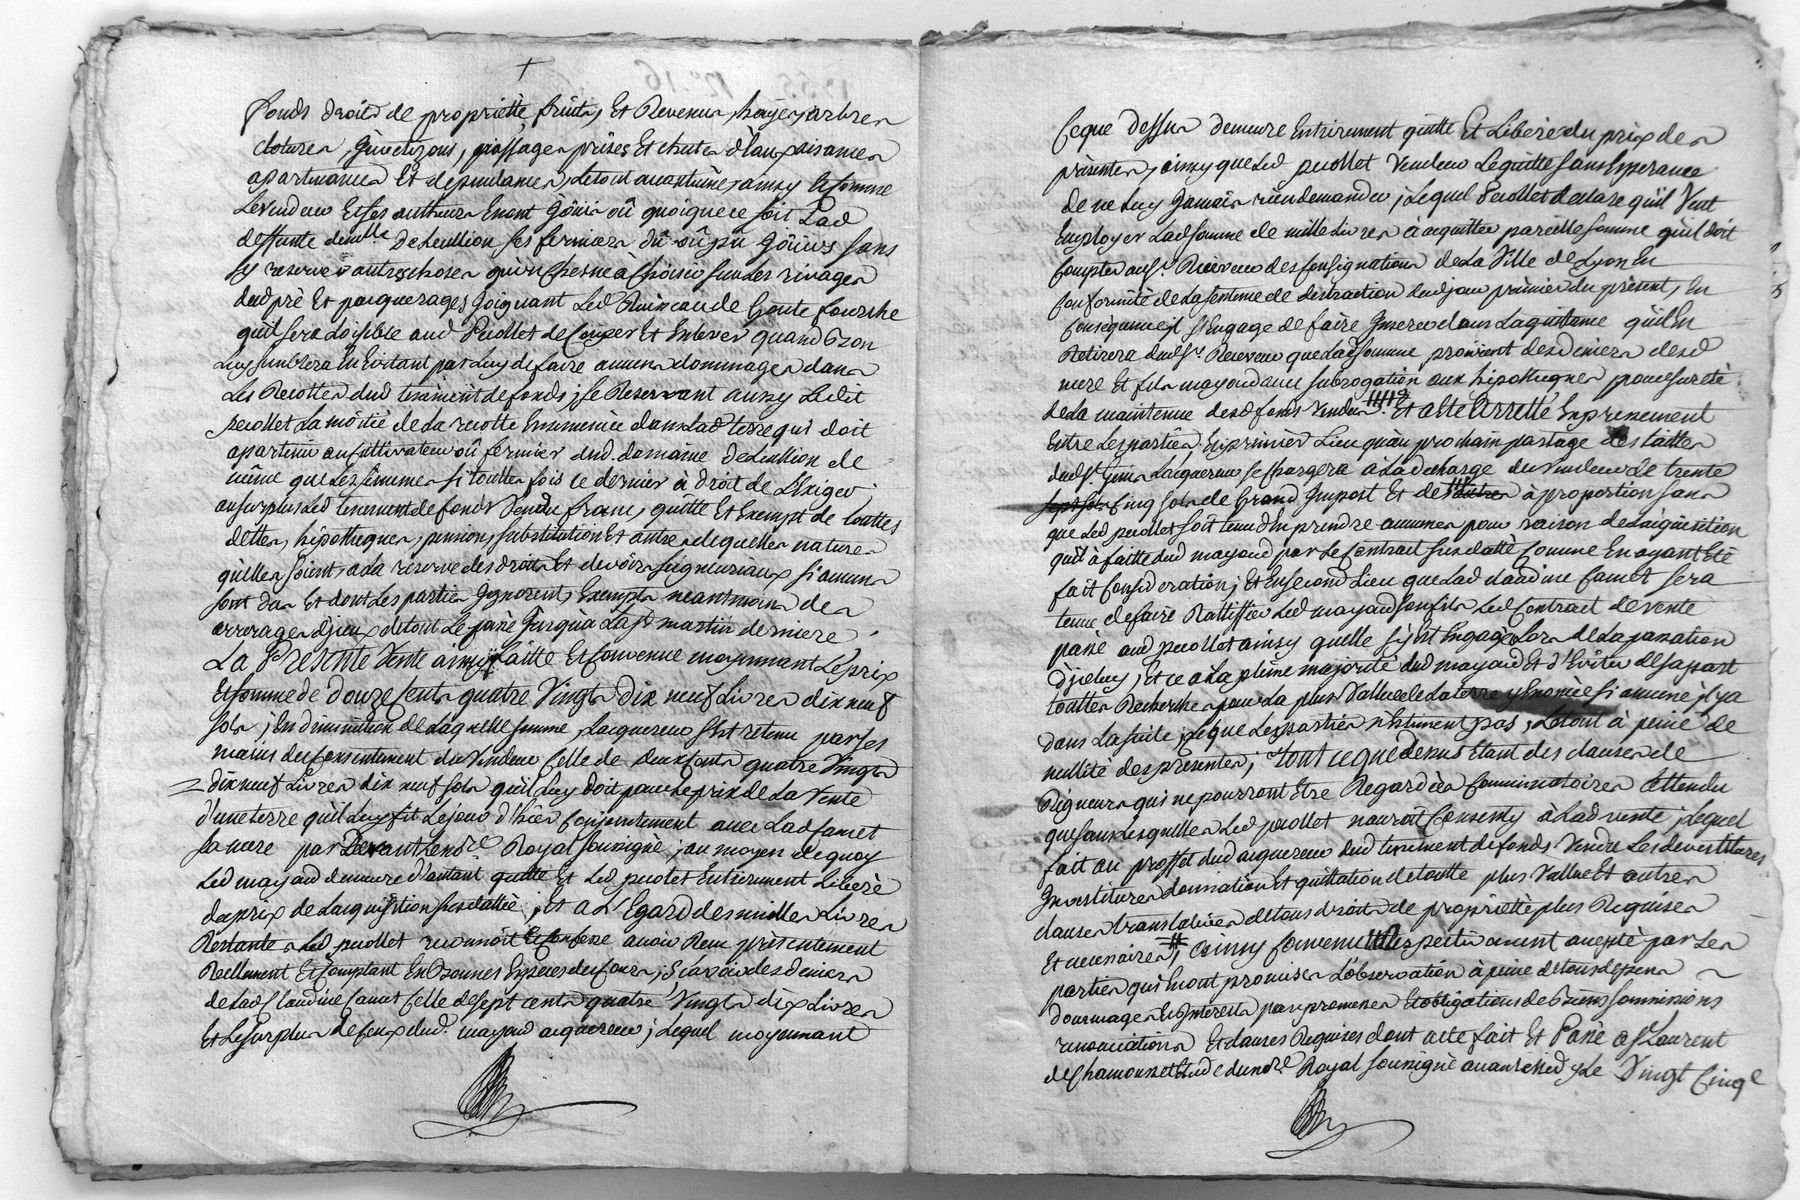 +
fonds droits de proprieté fruits, Et Revenus, hayes, arbres
clotures, passages prises Et chutes d'Eaux aisances
apartenances Et dependances, Letout auxtermes ainsy Et comme
Levendeur Et ses autheurs Enont Joüir oû quoique ce soit Lad
deffunte demlle deLeullion ses fermiers dû oû pu Joüir, sans
sy reserver autreschoses qu'un chesne à choisir sur Les rivages
dud pré Et paquerages Joignant Led Ruisseau de Goute fourche
quil sera Loisible aud Perollet de Couper Et Enlever quand bon
Luy semblera En Evitant par Luy de faire aucuns dommages dans
Les Recoltes dud tenement de fonds; se Reservant aussy Ledit
perollet La moitié de La recolte Ensemencée dans Lad terre qui doit
apartenir au cultivateur oû fermier dud. domaine deLeullion de
même que Les si touttes fois ce dernier à droit de L'Exiger;
au surplus Led tenement de fonds Vendu franc, quitte Et Exempt de touttes
dettes, hipotheques, pensions, substitution Et autres dequelles natures
qu'elles soient, ala reserve des droits Et devoirs seigneuriaux si aucuns
sont dus Et dont Les parties Ignorent, Exempts neantmoins des
arrerages d'jceux detout Le passé Jusqu'à La St martin derniere.
La Presente Vente ainsy faitte Et Convenue moyennant Le prix
Et somme de douze Cents quatre Vingts dix neuf Livres dix neuf
sols; En diminution de Laquelle somme, Lacquereur s'Est retenu par ses
mains du consentement du Vendeur Celle de deux Cents quatre Vingts
dix neuf Livres dix neuf sols qu'il Luy doit pour Le prix de La Vente
d'une terre qu'il Luy fit Le jour d'hier Conjointement avec Lad Camet
sa mere par Devant Le nore Royal soussigné; au moyen dequoy
Led mayoud demeure d'autant quitte Et Led perollet Entierement Liberé
du prix de Lacquisition susdattée; Et a L'Egard des mille Livres
Restantes Led perollet reconnoit Et Confesse avoir Receu présentement
Reellement Et Comptant En Bonnes Especes du Cours; sçavoir des deniers
de Lad Claudine Camet Celle de sept cents quatre Vingts dix Livres
Et Le surplus de Ceux dud. mayoud acquereur; Lequel moyennant
Ce que dessus demeure Entierement quitte Et Liberé du prix des
présentes, ainsy que Led perollet Vendeur Le quitte sans Esperance
de ne Luy Jamais rien demander; Lequel Perollet declare qu'il Veut
Employer Lad somme de mille Livres à acquitter pareille somme qu'il doit
Compter au sr Receveur des Consignations de La Ville de Lyon En
Conformité de La sentence de distraction dud jour premier du présent, En
Conséquence il s'Engage de faire Inserer dans La quittance qu'il En
Retirera dud sr Receveur que Lad somme provient des deniers desd
mere Et fils mayoud avec subrogation aux hipotheques pour sureté
de La maintenue desd fonds Vendus. Et a Eté Arretté Expressement
Entre Les parties En premier Lieu qu'au prochain partage des tailles
dud St. Lacquereur se chargera à La decharge du Vendeur de trente
Cinq sols de Grand Impost Et des autres à proportion sans
que Led perollet soit tenu d'En prendre aucunes pour raison de L'aquisition
qu'il à faitte dud mayoud par Le Contract susdatté Comme En ayant Eté
fait Consideration; Et En second Lieu que Lad claudine Camet sera
tenue de faire Rattiffier Led mayoud son fils Led Contract de vente
passé aud perollet ainsy quelle s'y Est Engagée Lors de La passation
d'jceluy; Et ce a La pleine majorité dud mayoud Et d'Eviter de sa part
touttes Recherches pour La plus Vallue de La terre y Enoncée si aucune jl y a
dans La suite, Ce que Les parties n'Estiment pas, Le tout à peine de
nullité des presentes; tout ce que dessus Etant des clauses de
Rigueurs qui ne pourront Etre Regardées Comminatoires Attendu
que sans Lesquelles Led perollet nauroit Consenty à Lad vente; Lequel
fait au proffet dud acquereur dud tenement de fonds Vendu Les devestitures
Investitures donnation Et quittation de toutte plus Vallue Et autres
clauses translatives de tous droits de proprieté plus Requises
Et necessaires; Ainsy Convenu Respectivement accepté par Les
parties qui En ont promis L'observation à peine de tous depens
dommages Et Interests par promesses Et obligations de Biens soumissions
renonciations Et clauses Requises dont acte fait Et Passé a St Laurent
de Chamousset Etude du nore. Royal soussigné avant midy Le Vingt Cinqe